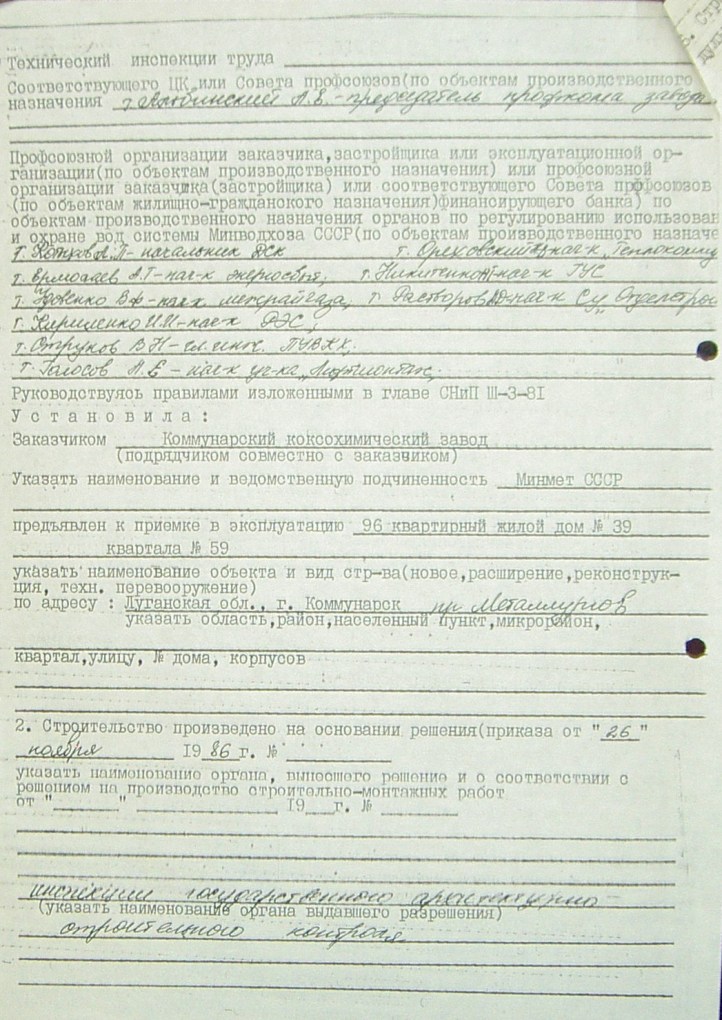 Технический инспекции труда
Соответствующего ЦК или Совета профсоюзов(по объектам производственного
назначения А.В.-председатель профкома завода
Профсоюзной организации заказчика,застройщика или эксплуатационной ор-
ганизации(по объектам производственного назначения) или профсоюзной
организации заказчика(застройщика) или соответствующего Совета профсоюзов
(по объектам жилищно-гражданского назначения)финансирующего банка) по
объектам производственного назначения органов по регулированию использован
и охране вод системы Минводхоза СССР(по объектам производственного назначе
т. начальник т. Ореховский нач-к "Теплокомму
т. Ермолаев А.Т-нач-к энергосбыт, т. Никитенко нач-к ГУС
т. В.Ф-нач-к межрайгаза, т. Растворов нач-к СУ "Отделстро
т. Кириленко И.И-нач-к РЭС,
т. Струков В Н-гл.инж. ПУВКХ,
т. Голосов А.Е-нач-к уч-ка "Лифтмонтаж,
Руководствуясь правилами изложенными в главе СНиП Ш-3-81
У с т а н о в и л а :
Заказчиком Коммунарский коксохимический завод
(подрядчиком совместно с заказчиком)
Указать наименование и ведомственную подчиненность Минмет СССР
предъявлен к приемке в эксплуатацию 96 квартирный жилой дом № 39
квартала № 59
указать наименование объекта и вид стр-ва(новое,расширение,реконструк-
ция, техн. перевооружение)
по адресу : Луганская обл., г. Коммунарск пр Металлургов
указать область,район,населенный пункт,микрорайон,
квартал,улицу, № дома, корпусов
2. Строительство произведено на основании решения(приказа от "26"
ноября 19 86 г. №
указать наименование органа, выносшего решение и о соответствии с
решением на производство строительно-монтажных работ
от " " 19 г. №
инспекции государственного архитектурно
(указать наименование органа выдавшего разрешения)
строительного контроля